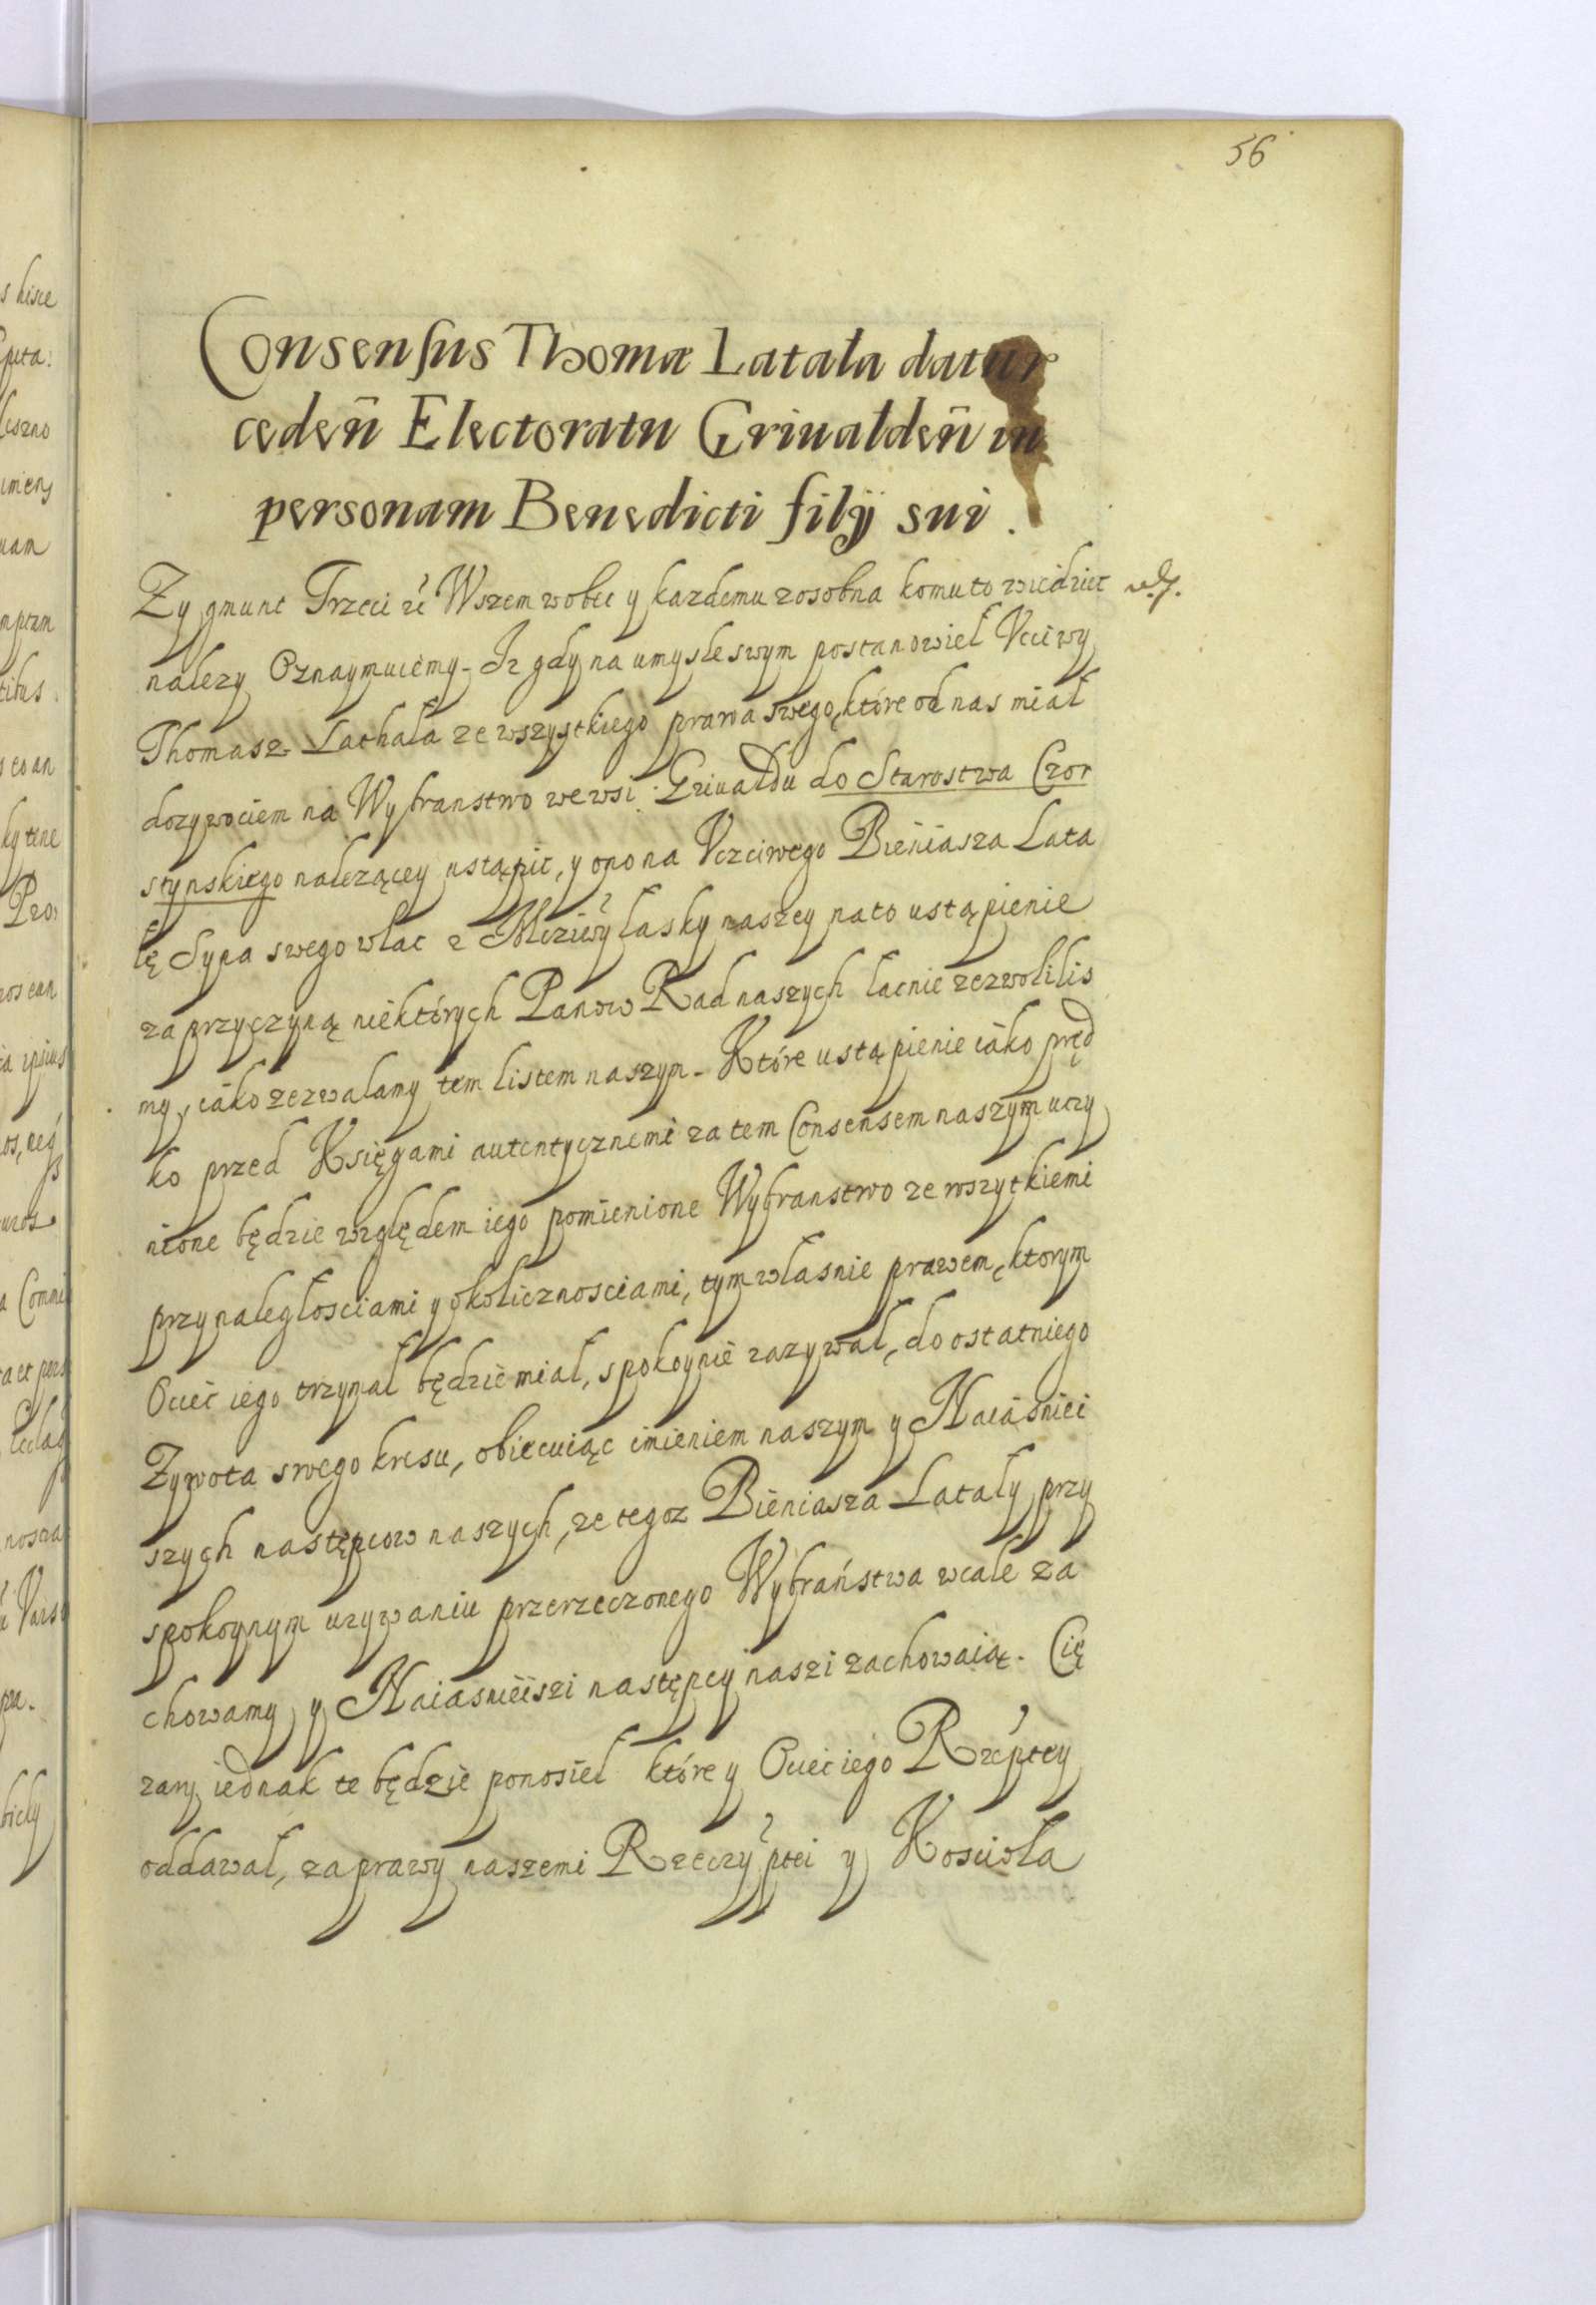 56
Consensus Thomæ Latała datur
cedeñ Electoratu Griualdeñ in
personam Benedicti filij sui.
Zygmunt Trzeci etc Wszem wobec y kazdemu zosobna komu to wiedziec
nalezy Oznaymuiemy. Iz gdy na umysle swym postanowieł Vcciwy
Thomasz Lathała ze wszystkiego prawa swego, które od nas miał
dozywociem na Wybranstwo we wsi Griuałdu do Starostwa Czor
stynskiego nalezącey ustąpic, y ono na Vczciwego Bieniasza Lata
lę Syna swego wlac z łasky naszey na to ustąpienie
za przyczyną niektórych Panow Rad naszych łacnie zezwolilis
my, iáko zezwalamy tem listem naszym. Które ustąpienie iáko pręd
ko przed Księgami autentycznemi za tem Consensem naszym uczy
nione będzie względem iego pomienione Wybranstwo ze wszytkiemi
przynaległosciami y okolicznosciami, tym własnie prawem, ktorym
Ociec iego trzymał będzie miał, spokoynie zazywał, do ostatniego
Zywota swego kresu, obiecuiąc imieniem naszym y Naiásniei
szych następcow naszych, ze tegoz Bieniasza Latały przy
spokoynym uzywaniu przerzeczonego Wybraństwa wcale za
chowamy y Naiasnieiszi następcy naszi zachowaią. Cię
zary iednak te będzie ponosieł które y Ociec iego Rzeptey
oddawał, za prawy naszemi Rzeczyptei y Koscioła
s hisce
puta:
uam
titus.
Pro
ia ipsius
a Comni
noscia
Vars